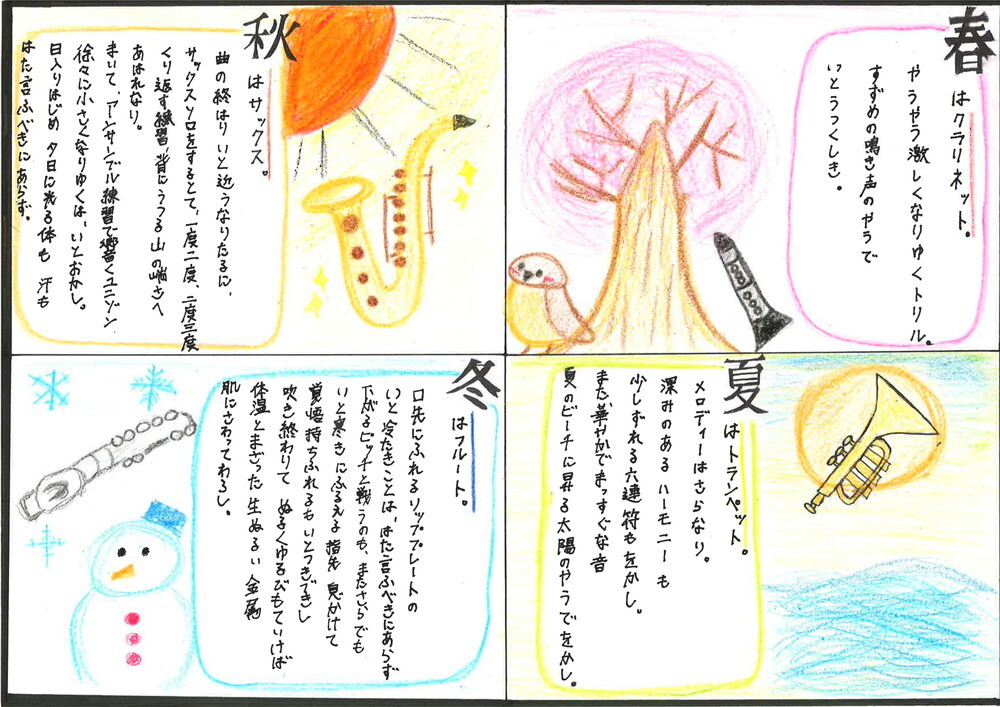 春はクラリネット。
やうやう激しくなりゆくトリル。
すずめの鳴き声のやうで
いとうつくしき。
夏はトランペット。
メロディーはさらなり。
深みのあるハーモニーも
少しずれる六連符もをかし。
まだ華やかでまっすぐな音
夏のビーチに昇る太陽のやうでをかし。
秋はサックス。
曲の終はりいと近うなりたるに、
サックスソロをするとて、一度二度、二度三度
くり返す練習、背にうつる山の端さへ
あはれなり。
まいて、アンサンブル練習で響くユニゾン
徐々に小さくなりゆくは、いとおかし。
日入りはじめ夕日に光る体も 汗も
はた言ふべきにあらず。
冬はフルート。
口先にふれるリッププレートの
いと冷たきことは、はた言ふべきにあらず
下がるピッチと戦うのも、またさらでも
いと寒きにふるえる指先 息かけて
覚悟持ちふれるもいとつきづきし
吹き終わりて ぬるくゆるびもていけば
体温とまざった生ぬるい金属
肌にさわってわるし。